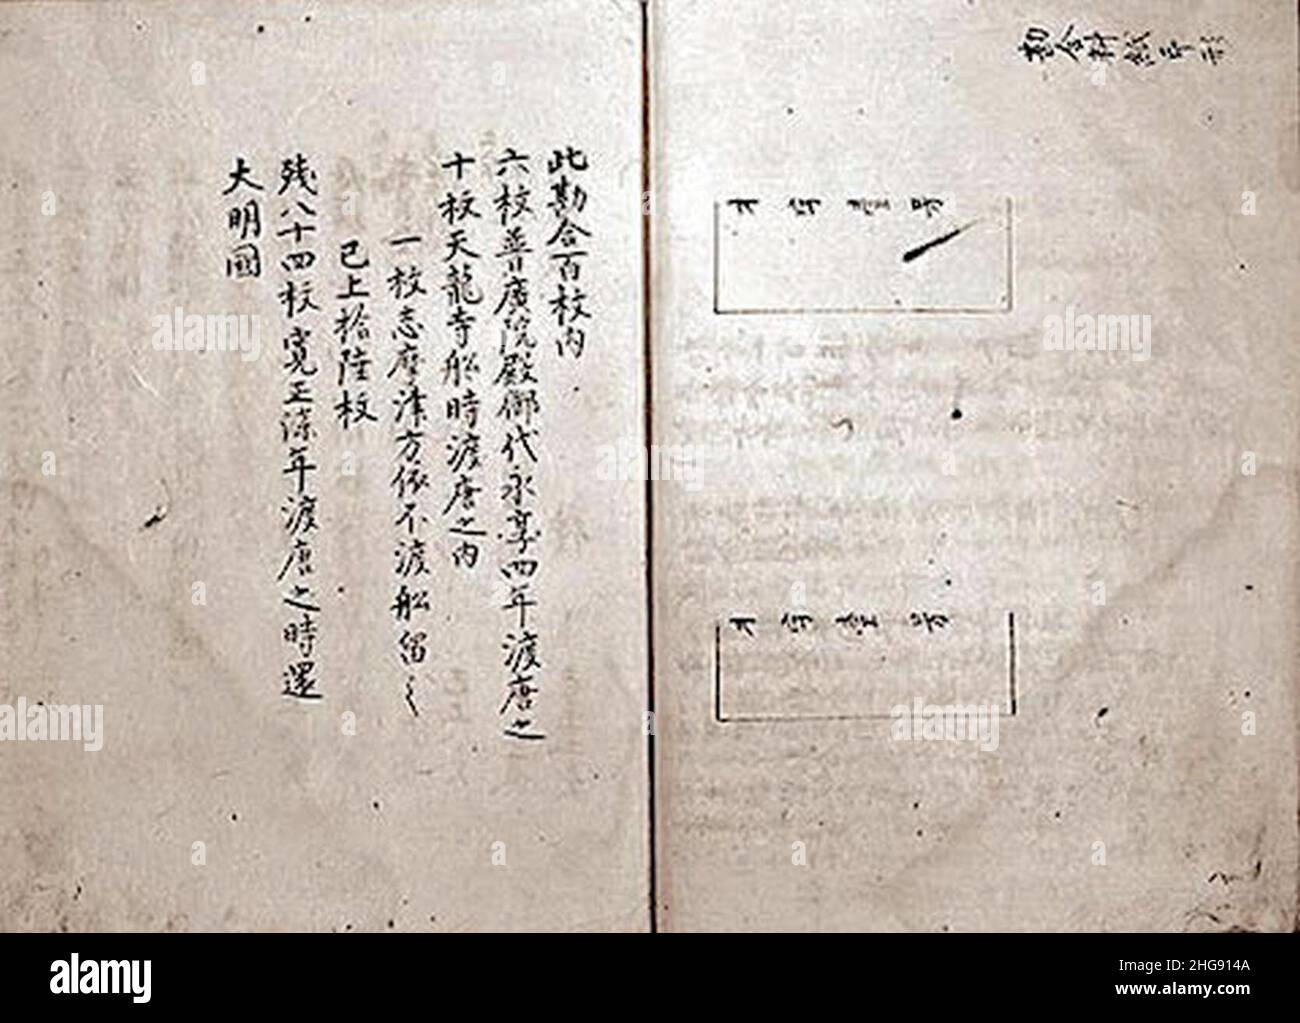 勘合料紙印形
本字壹號
本字壹號
此勘合百枚内
六枚普廣院殿御代永享四年渡唐之
十枚天龍寺舩時渡唐之内
一枚志摩津方依不渡舩留之
已上拾陸枚
残八十四枚寛正
年渡唐之時還
大明國
alamy
Image ID: 2HG914A
www.alamy.com